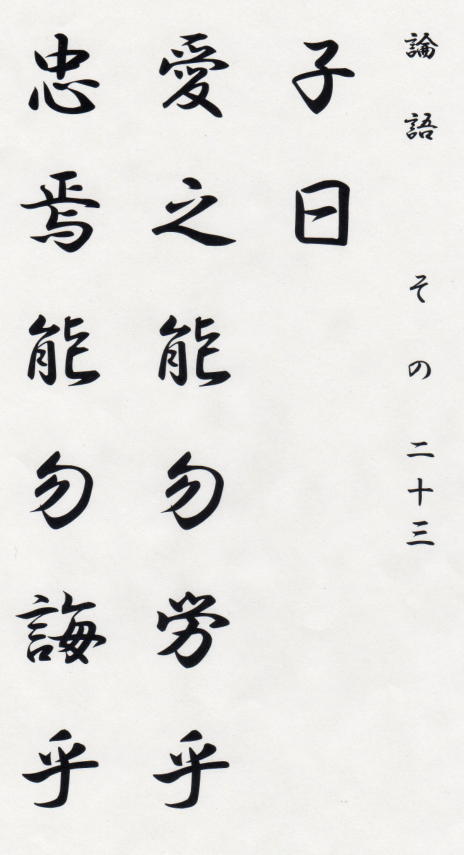 論語 その二十三
子曰
愛之能勿労乎
忠焉能勿誨乎